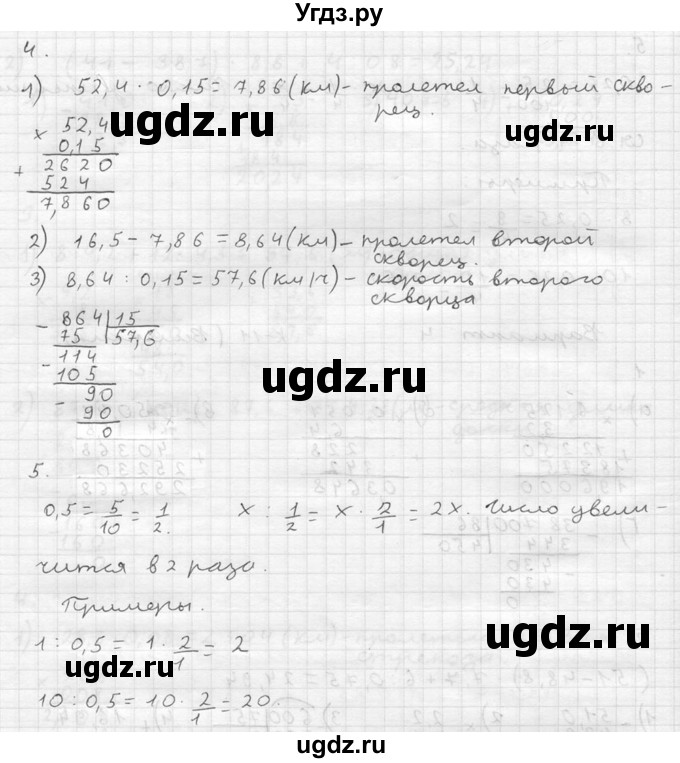 Угдз.ру
4.
1) 52,4 · 0,15 = 7,86 (км) - пролетел первый скво-
рец.
× 52,4
0,15
+ 2620
524
7,860
ugdz.ru
ugdz.ru
2) 16,5 - 7,86 = 8,64 (км) - пролетел второй
скворец.
3) 8,64 : 0,15 = 57,6 (км/ч) - скорость второго
скворца
- 864 | 15
75 | 57,6
114
- 105
90
- 90
0
ugdz.ru
5.
0,5 = 5/10 = 1/2. x : 1/2 = x · 2/1 = 2x. Число увели-
чится в 2 раза.
Примеры.
ugdz.ru
1 : 0,5 = 1 · 2/1 = 2
ugdz.ru
10 : 0,5 = 10 · 2/1 = 20.
ugdz.ru